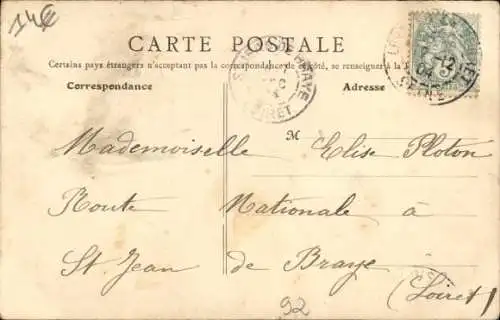 14€
CARTE POSTALE
Certains pays étrangers n'acceptant pas la correspondance de côté, se renseigner à la
Correspondance
Adresse
M
Mademoiselle Elise Ploton
Route Nationale à
St Jean de Braye
(Loiret)
92